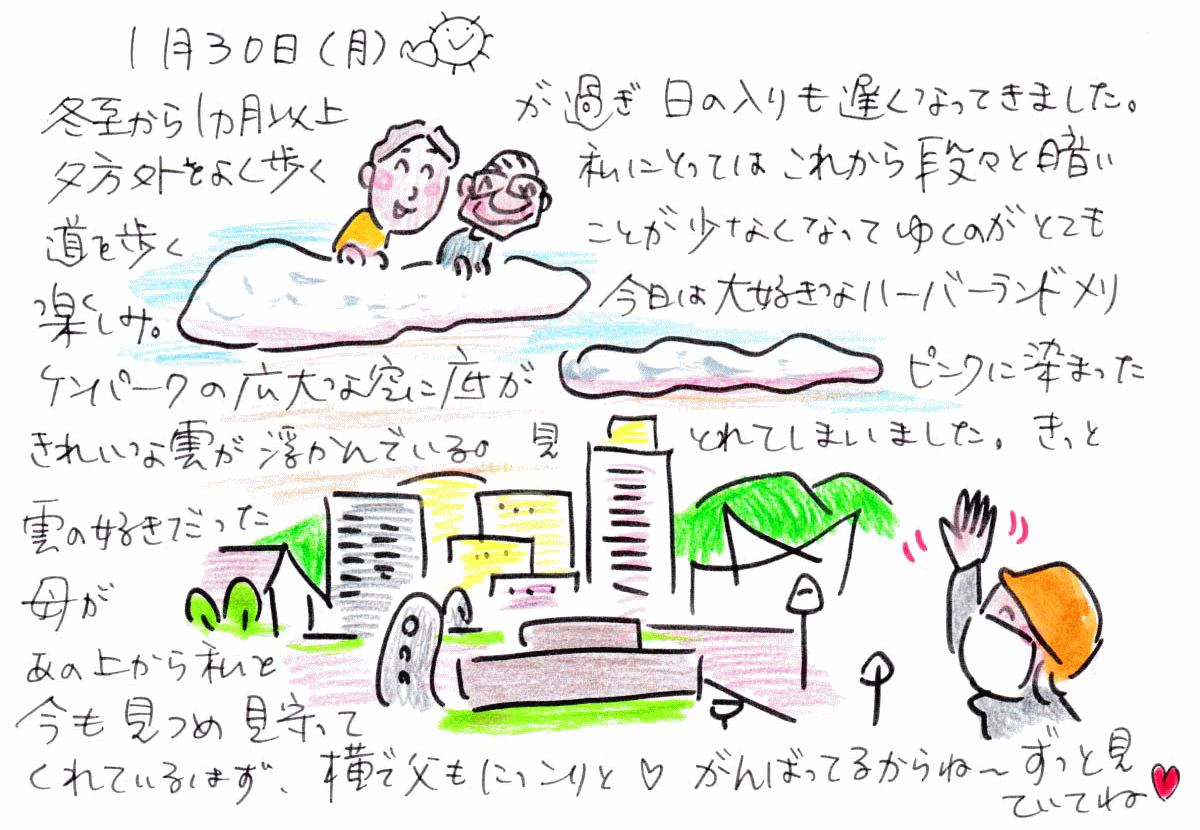 1月30日(月)
冬至から1カ月以上が過ぎ 日の入りも遅くなってきました。
夕方外をよく歩く私にとっては これから段々と暗い
道を歩くことが少なくなってゆくのがとても
楽しみ。今日は大好きなハーバーランドメリ
ケンパークの広大な空に底がピンクに染まった
きれいな雲が浮かんでいる。見とれてしまいました。きっと
雲の好きだった
母が
あの上から私を
今も見つめ見守って
くれているはず、横で父もにっこりと♡ がんばってるからね〜ずっと見
ていてね♥